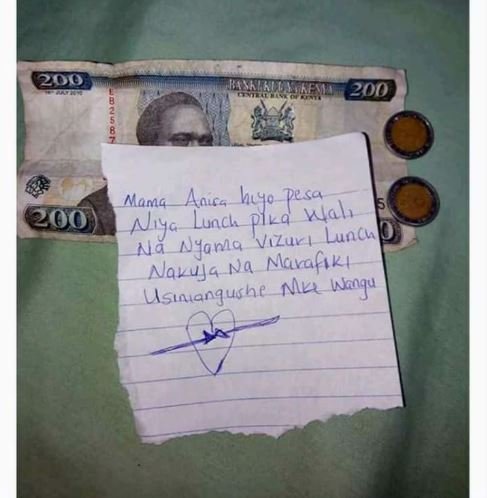 200
16TH JULY 2010
BANKI KUU YA KENYA
CENTRAL BANK OF KENYA
200
EB2587
200
Mama Anisa hiyo Pesa
Niya Lunch pika Wali
Na Nyama Vizuri Lunch
Nakuja Na Marafiki
Usiniangushe Mke Wangu